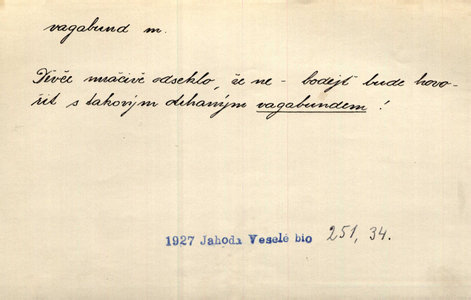 vagabund m.
Děvče mračivě odseklo, že ne - bodejť bude hovo-
řit s takovým otrhaným vagabundem!
1927 Jahoda Veselé bio 251, 34.